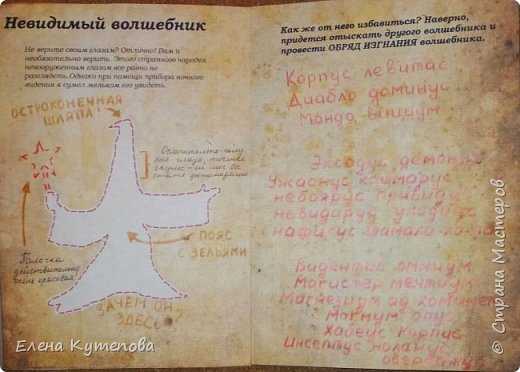 Невидимый волшебник
Не верите своим глазам? Отлично! Вам и
необязательно верить. Этого странного чародея
невооруженным глазом все равно не
разглядеть. Однако при помощи прибора ночного
видения я сумел мельком его увидеть.
ОСТРОКОНЕЧНАЯ
ШЛЯПА!
ПОЯС
С ЗЕЛЬЯМИ
Палочка
действительно
ЗАЧЕМ ОН
ЗДЕСЬ?
Как же от него избавиться? Наверно,
придется отыскать другого волшебника и
провести ОБРЯД ИЗГНАНИЯ волшебника.
Корпус левитас
Диабло доминус
Мондо вициум
Экзодус
Ужасиус кошмарус
небоярус привиду
невидару уходиус
Видентис омниум
Магистер ментиум
Магнезиум ад
Магнум опус
Хабеус корпус
Инсептус ноланус
Елена Кутепова
© Страна Мастеров